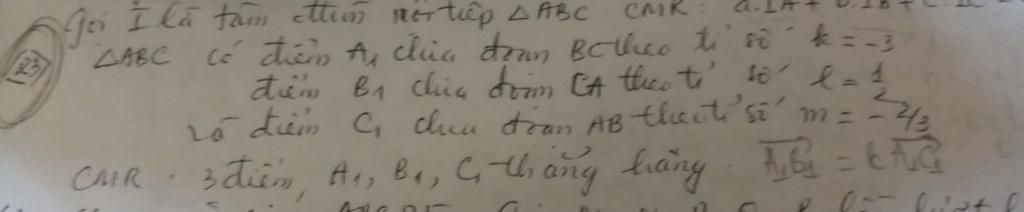 Gọi I là tâm đường nội tiếp △ABC CMR: a.IA + b.IB + c.IC =
23
△ABC có điểm A₁ chia đoạn BC theo tỉ số k = -3
điểm B₁ chia đoạn CA theo tỉ số l = 1/2
và điểm C₁ chia đoạn AB theo tỉ số m = -2/3
CMR. 3 điểm, A₁, B₁, C₁ thẳng hàng. A₁B₁ = kA₁C₁